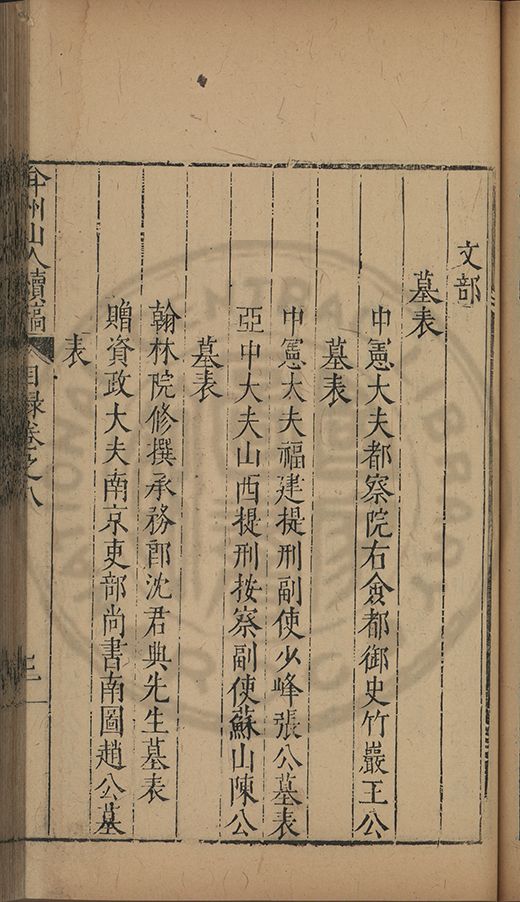 文部
墓表
中憲大夫都察院右僉都御史竹巖王公
墓表
中憲大夫福建提刑副使少峰張公墓表
亞中大夫山西提刑按察副使蘇山陳公
墓表
翰林院修撰承務郎沈君典先生墓表
贈資政大夫南京吏部尚書南圖趙公墓
表
弇州山人續稿
目録卷之八